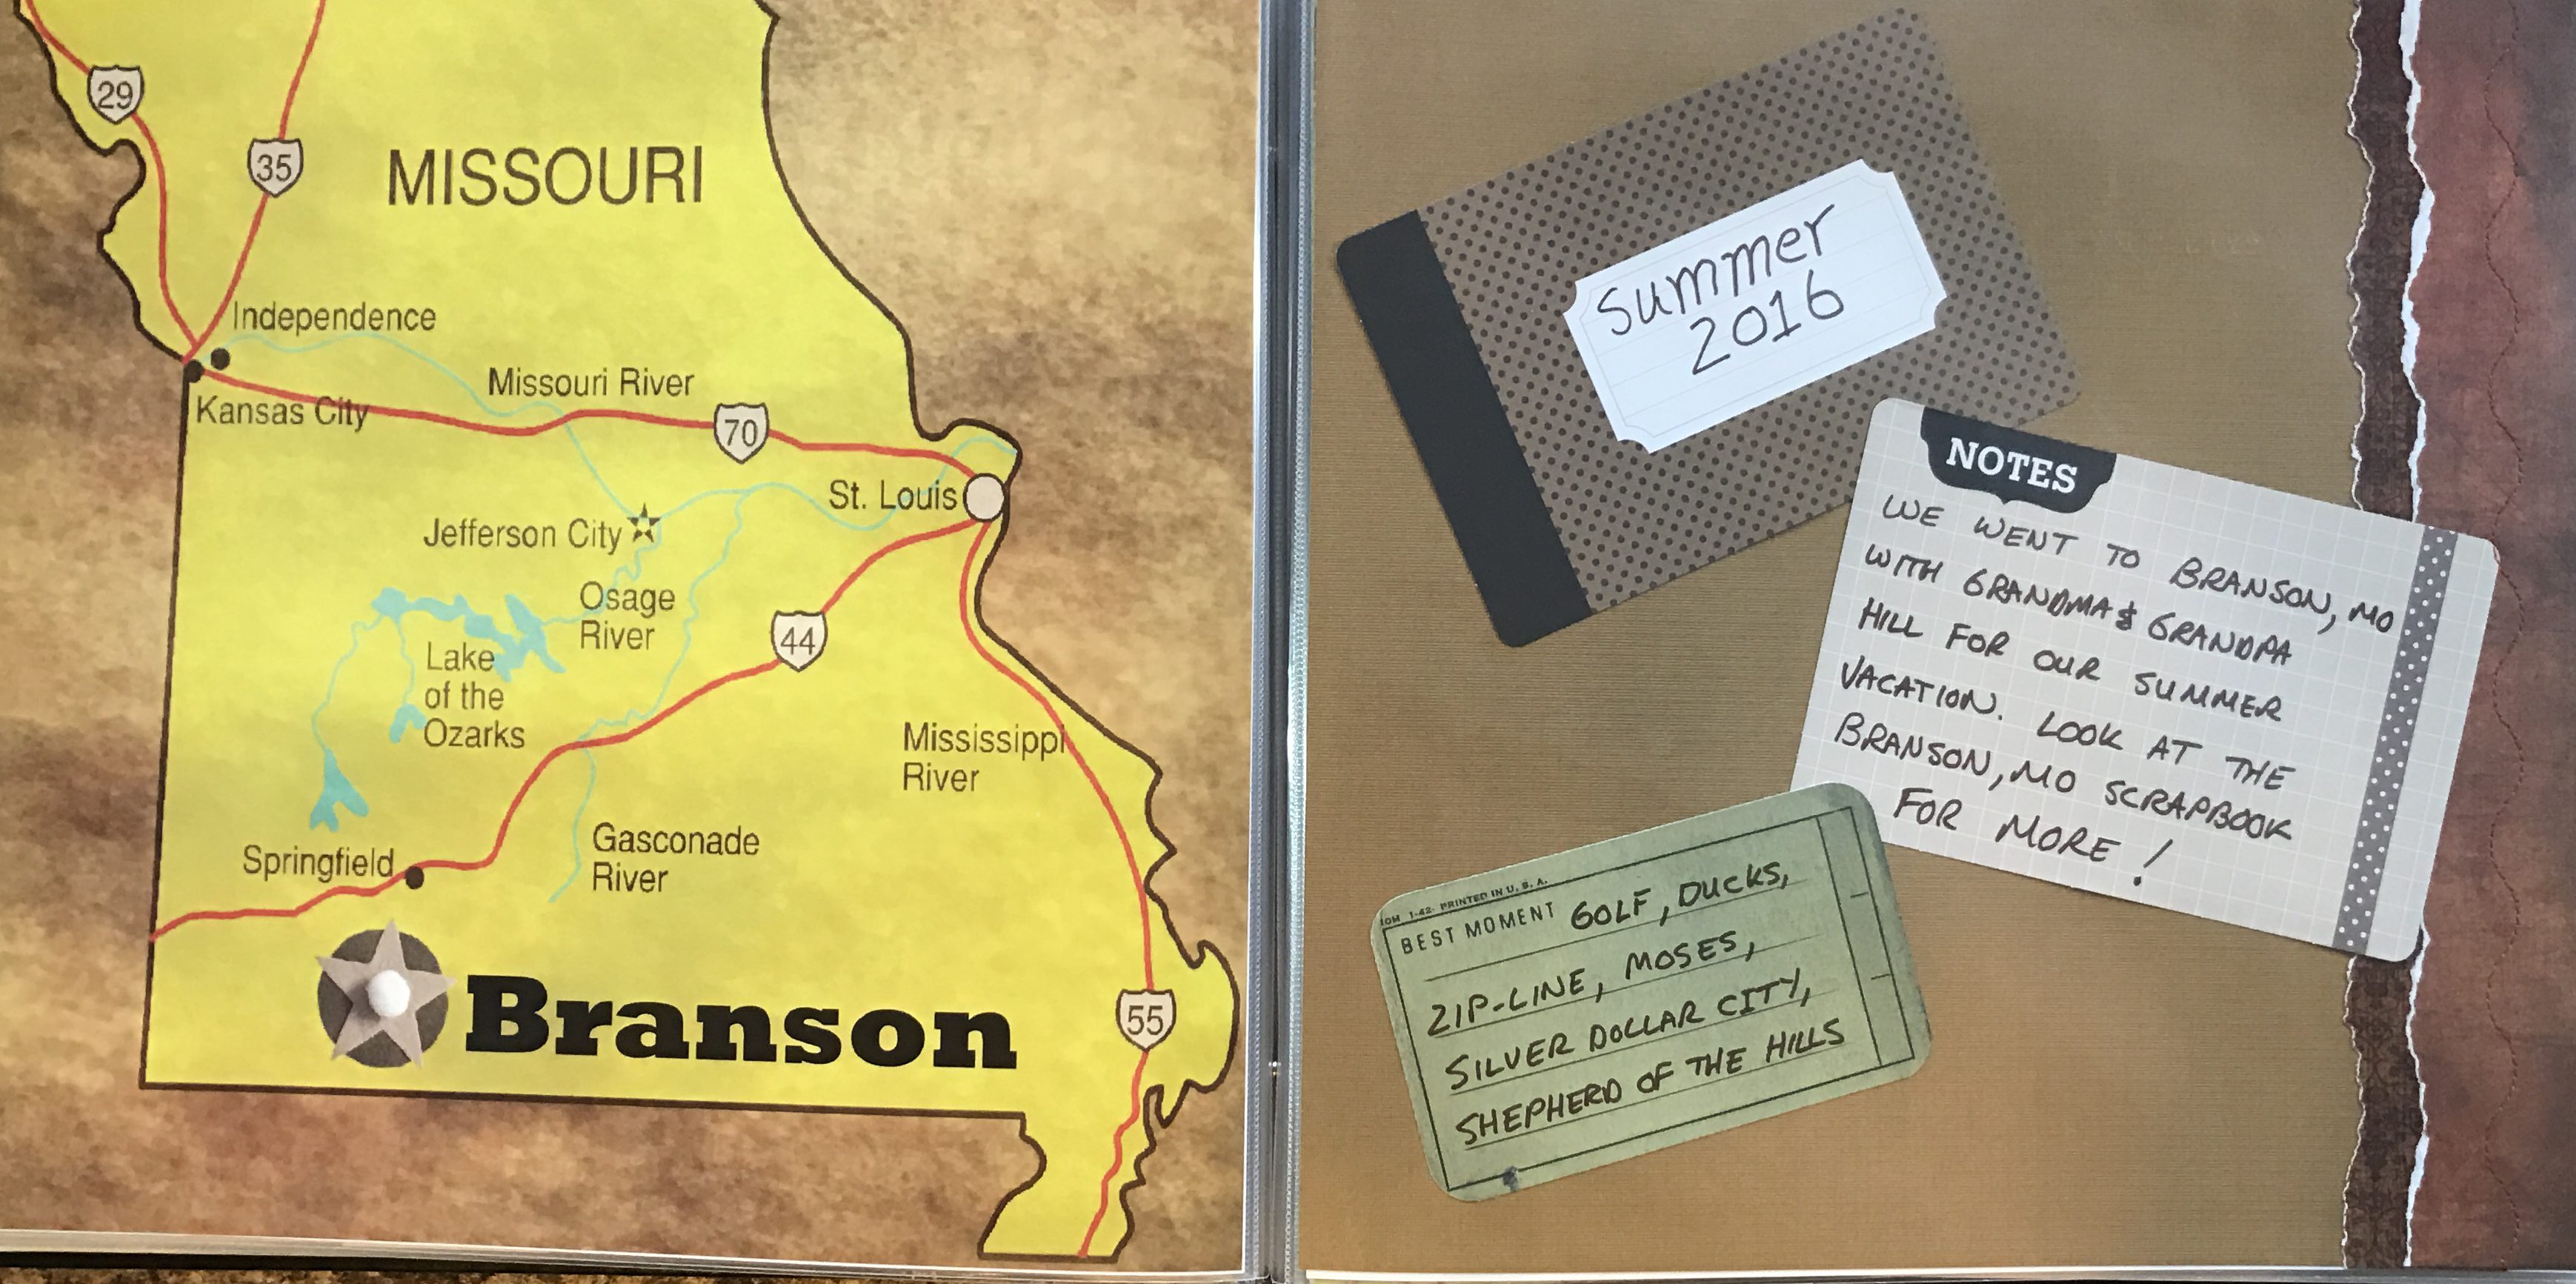 29
35
MISSOURI
Independence
Missouri River
Kansas City
70
St. Louis
Jefferson City
Osage
River
44
Lake
of the
Ozarks
Mississippi
River
Gasconade
River
Springfield
Branson
55
Summer
2016
NOTES
WE WENT TO BRANSON, MO
WITH GRANDMA & GRANDPA
HILL FOR OUR SUMMER
VACATION. LOOK AT THE
BRANSON, MO SCRAPBOOK
FOR MORE!
1-42- PRINTED IN U. S. A.
BEST MOMENT GOLF, DUCKS,
ZIP-LINE, MOSES,
SILVER DOLLAR CITY,
SHEPHERD OF THE HILLS